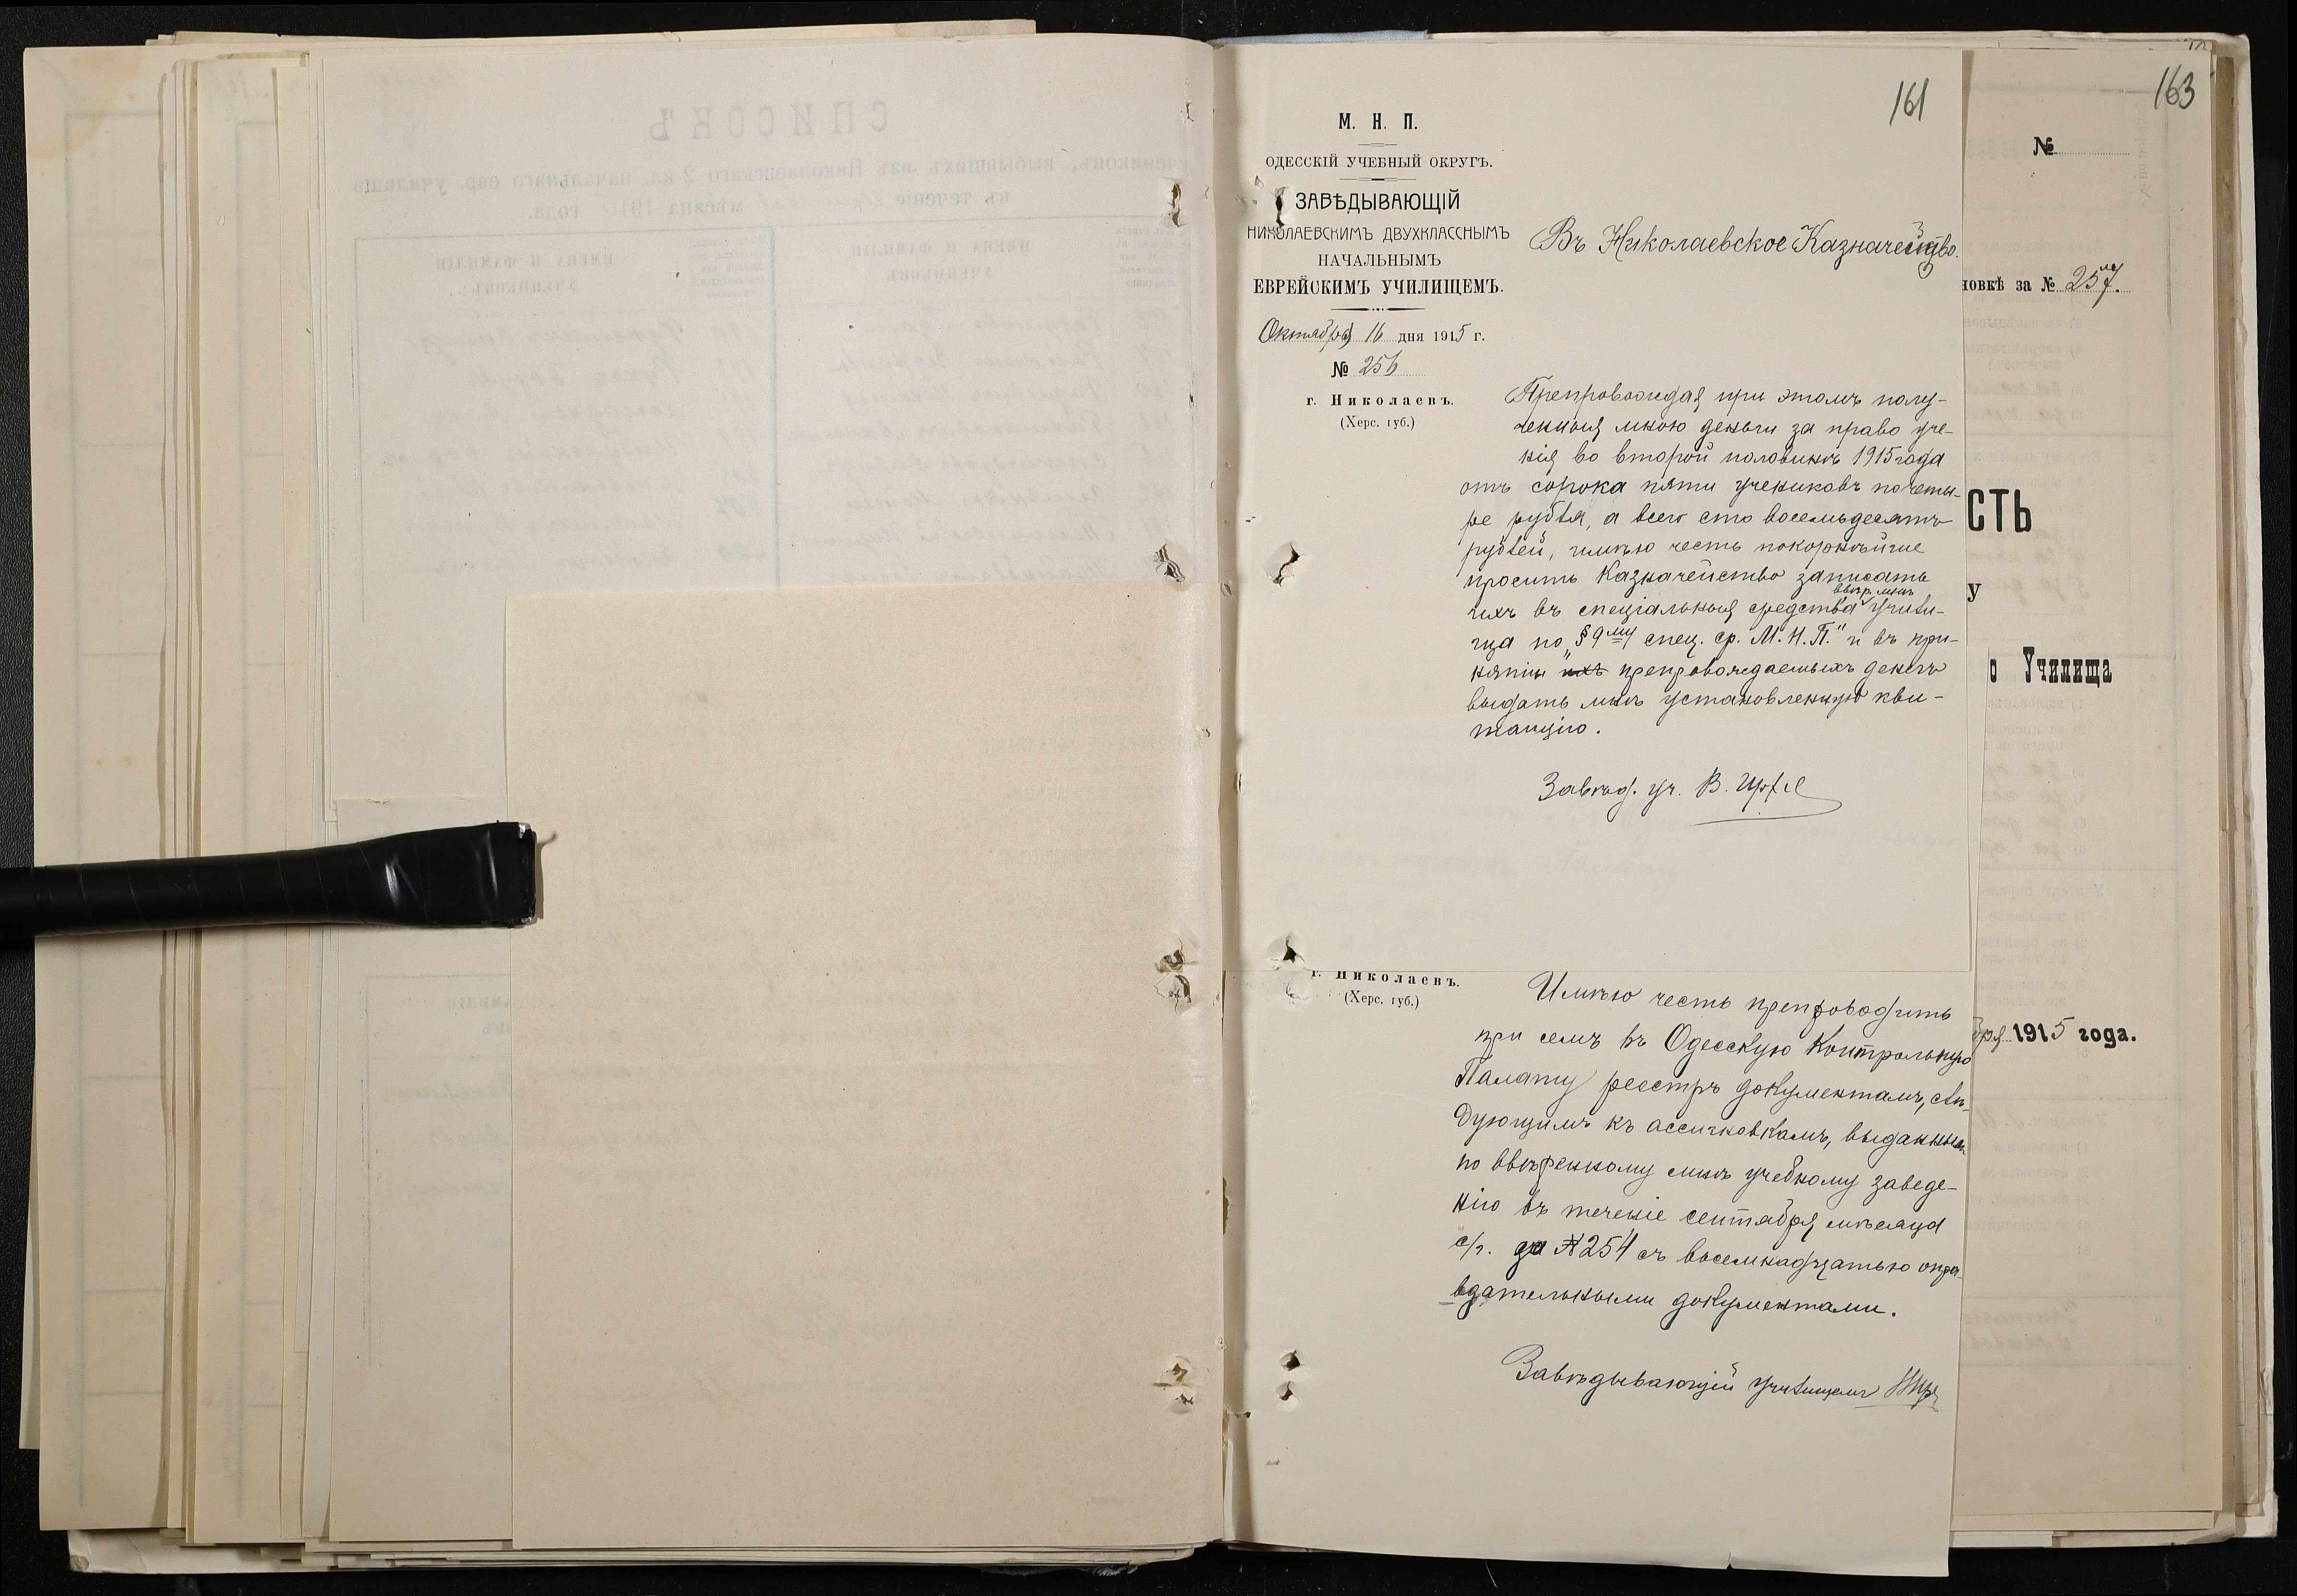 161
М. Н. П.
ОДЕССКІЙ УЧЕБНЫЙ ОКРУГЪ.
ЗАВѢДЫВАЮЩІЙ
НИКОЛАЕВСКИМЪ ДВУХКЛАССНЫМЪ
НАЧАЛЬНЫМЪ
ЕВРЕЙСКИМЪ УЧИЛИЩЕМЪ.
Октября 16 дня 1915 г.
№ 256
г. Николаевъ.
(Херс. губ.)
Въ Николаевское Казначейство.
Препровождая при этомъ полу-
ченныя мною деньги за право уче-
нія во второй половинѣ 1915 года
отъ сорока пяти учениковъ по четы-
ре рубля, а всего сто восемьдесятъ
рублей, имѣю честь покорнѣйше
просить Казначейство записать
ввѣр. мнѣ
ихъ въ спеціальныя средства учили-
ща по „§ 9му спец. ср. М. Н. П." и въ при-
нятіи ихъ препровождаемыхъ денегъ
выдать мнѣ установленную кви-
танцію.
Завѣд. уч. В.
г. Николаевъ.
(Херс. губ.)
Имѣю честь препроводить
при семъ въ Одесскую Контрольную
Палату реестръ документамъ, слѣ-
дующимъ къ ассигновкамъ, выданнымъ
по ввѣренному мнѣ учебному заведе-
нію въ теченіе сентября мѣсяца
с/г. за № 254 съ восемнадцатью опра-
вдательными документами.
Завѣдывающій училищемъ
163
№
новкѣ за № 257.
СТЬ
У
о Училища
бря 1915 года.
СПИСОКЪ
учениковъ, выбывшихъ изъ Николаевскаго 2 кл. начальнаго евр. училища
въ теченіе мѣсяца 191 года.
ИМЕНА И ФАМИЛІИ
УЧЕНИКОВЪ.
ИМЕНА И ФАМИЛІИ
УЧЕНИКОВЪ.